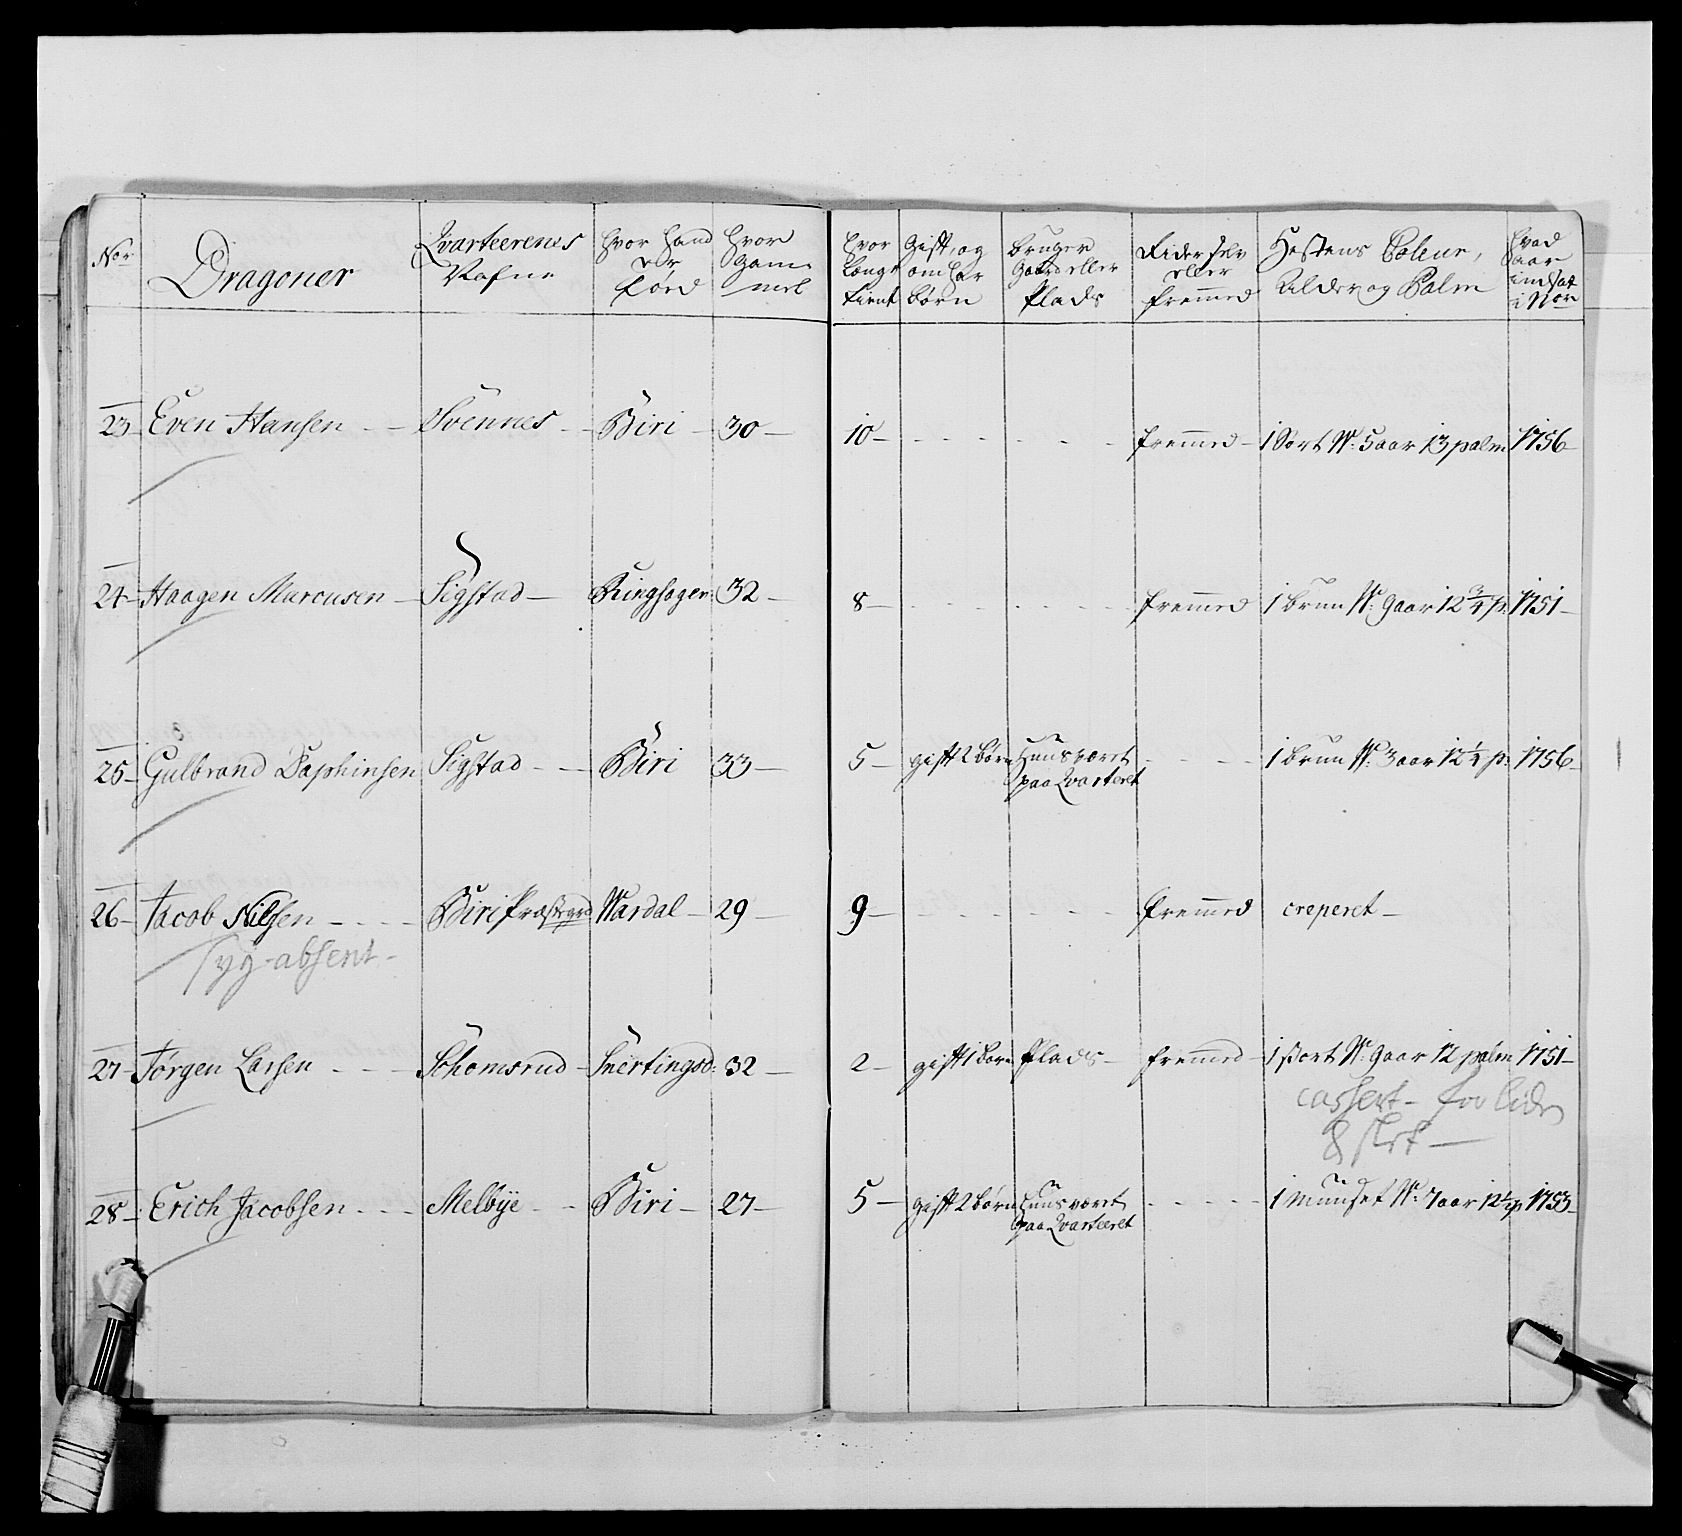 Nor
Dragoner
Qvarteerenes Nafne
hvor hand er Fød
hvor gammel
hvor lenge tient
gift, og om har børn
bruger Gaard eller Plads
Rider selv eller fremmed
Hestens Coleur, Alder og Palm
hvad aar indsat i Nor
23 – Even Hansen – – Svennes – – Biri – 30 – 10 – – – – – – – fremmed – 1 Sort W: 5 aar 13 palm 1756 –
24 – Haagen Marcusen – Sigstad – Ringsager 32 – 8 – – – – – – – fremmed 1 brun W: 9 aar 12 3/4 p: 1751 –
25 – Gulbrand Daphinsen Sigstad – – Biri 33 – 5 – gift 2 børn Huusværet – – – – 1 brun W: 3 aar 12 1/4 p: 1756 –
paa Qvarteret
26 – Jacob Nilsen – – – – Biri Præstegrd Wardal – 29 – 9 – – – – – – – fremmed creperet –
syg – absent –
27 – Jørgen Larsen – – – Schomsrud – Snertingsd: 32 – 2 – gift 1 barn Plads – fremmed – 1 sort W: 9 aar 12 palm 1751 –
cassert – for liden
28 – Erich Jacobsen – – – Melbye – – Biri – 27 – 5 – gift 2 børn Huusværet – – – – 1 muuset W: 7 aar 12 1/2 p 1753 –
paa Qvarteeret